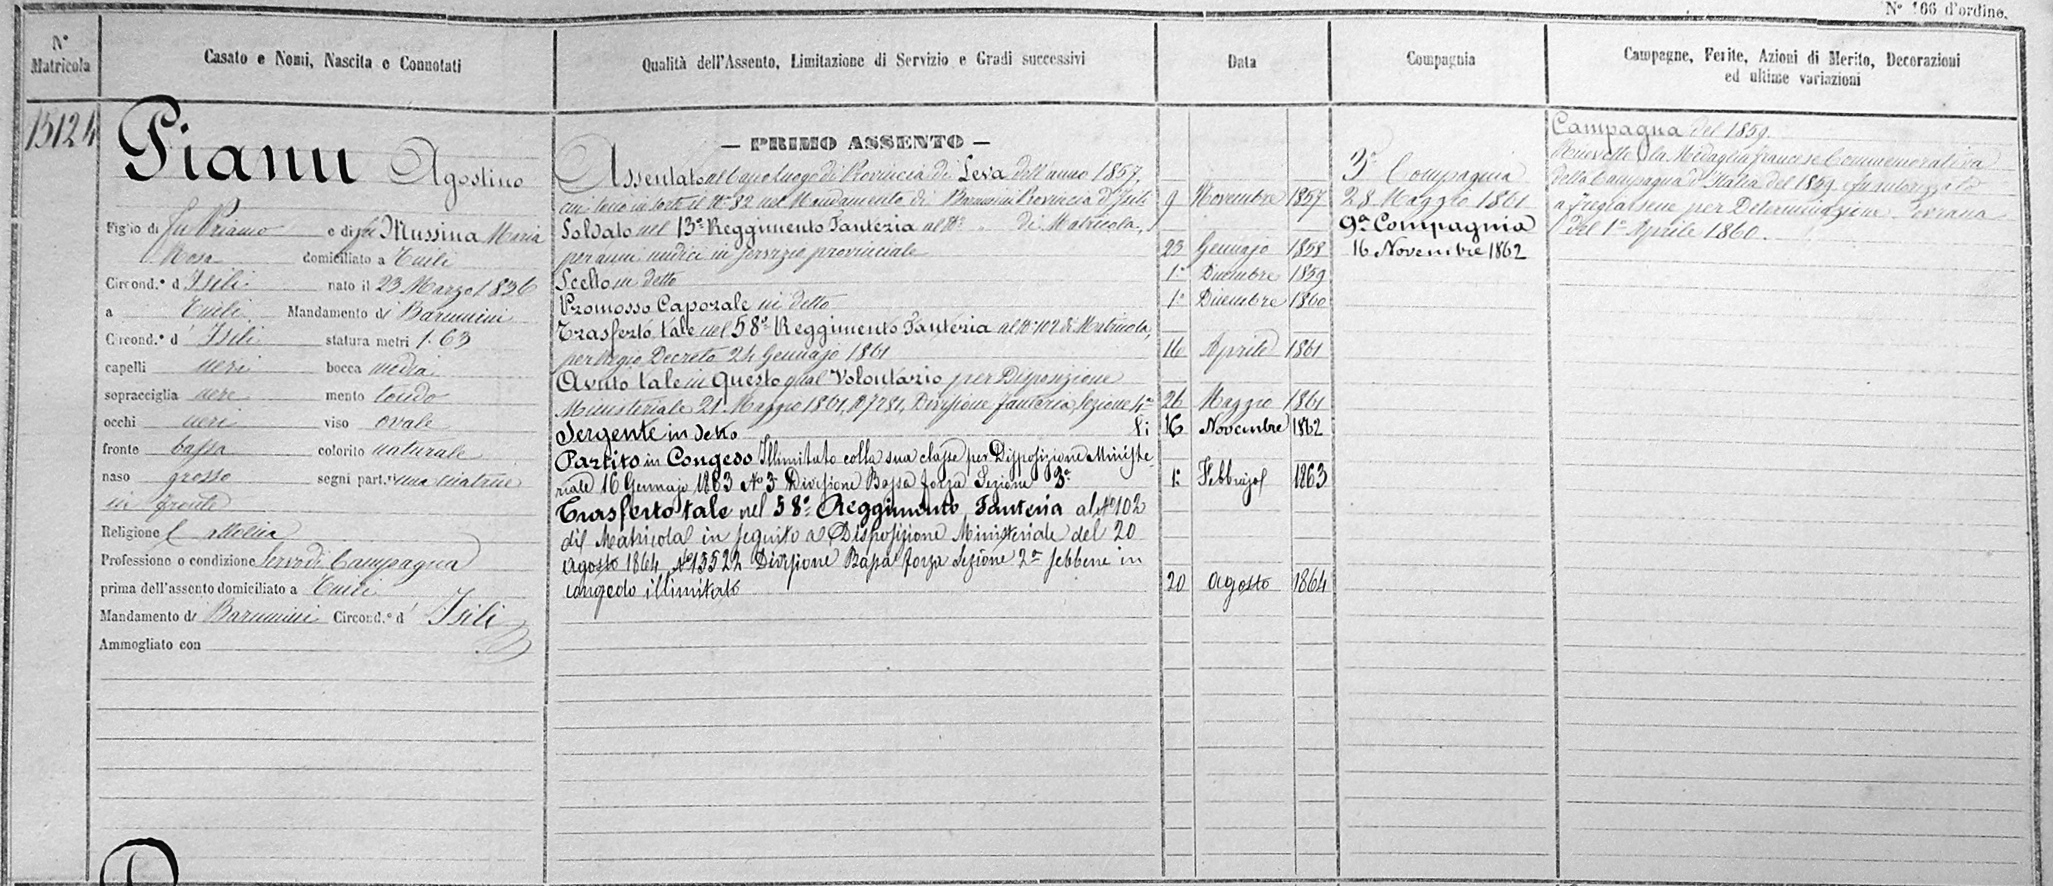 N° 166 d'ordine.
N° Matricola
Casato e Nomi, Nascita e Connotati
Qualità dell'Assento, Limitazione di Servizio e Gradi successivi
Data
Compagnia
Campagne, Ferite, Azioni di Merito, Decorazioni
ed ultime variazioni
15124
Pianu Agostino
Figlio di fu Priamo e di fu Mussina Maria
Rosa domiciliato a Tuili
Circond.° d'Isili nato il 23 Marzo 1836
a Tuili Mandamento di Barumini
Circond.° d'Isili statura metri 1.63
capelli neri bocca media
sopracciglia nere mento tondo
occhi neri viso ovale
fronte bassa colorito naturale
naso grosso segni part.ri una cicatrice
in fronte
Religione Cattolica
Professione o condizione Servo di Campagna
prima dell'assento domiciliato a Tuili
Mandamento di Barumini Circond.° d'Isili
Ammogliato con
— PRIMO ASSENTO —
Assentato al Capo luogo di Provincia di Leva dell'anno 1857,
cui toccò in sorte il N° 82 nel Mandamento di Barumini Provincia d'Isili 9 Novembre 1857
Soldato nel 13° Reggimento Fanteria al N° „ di Matricola,
per anni undici in servizio provinciale 23 Gennajo 1858
Scelto in detto 1° Dicembre 1859
Promosso Caporale in detto 1° Dicembre 1860
Trasferto tale nel 58° Reggimento Fanteria al N° 102 di Matricola,
per Regio Decreto 24 Gennajo 1861 16 Aprile 1861
Avuto tale in Questo qual Volontario per Disposizione
Ministeriale 21 Maggio 1861, N° 7281, Divisione fanteria, Sezione 4ª 26 Maggio 1861
Sergente in detto li 16 Novembre 1862
Partito in Congedo Illimitato colla sua classe per Disposizione Ministe-
riale 16 Gennajo 1863 N° 5 Divisione Bassa forza Sezione 3ª 1° Febbrajo 1863
Trasferto tale nel 58° Reggimento Fanteria al N° 102
di Matricola in seguito a Disposizione Ministeriale del 20
Agosto 1864 N° 13522 Divisione Bassa forza Sezione 2ª sebbene in
congedo illimitato 20 Agosto 1864
3ª Compagnia
28 Maggio 1861
9ª Compagnia
16 Novembre 1862
Campagna del 1859.
Ricevette la Medaglia francese Commemorativa
della Campagna d'Italia del 1859. fu autorizzato
a fregiarsene per Determinazione Sovrana
del 1° Aprile 1860.